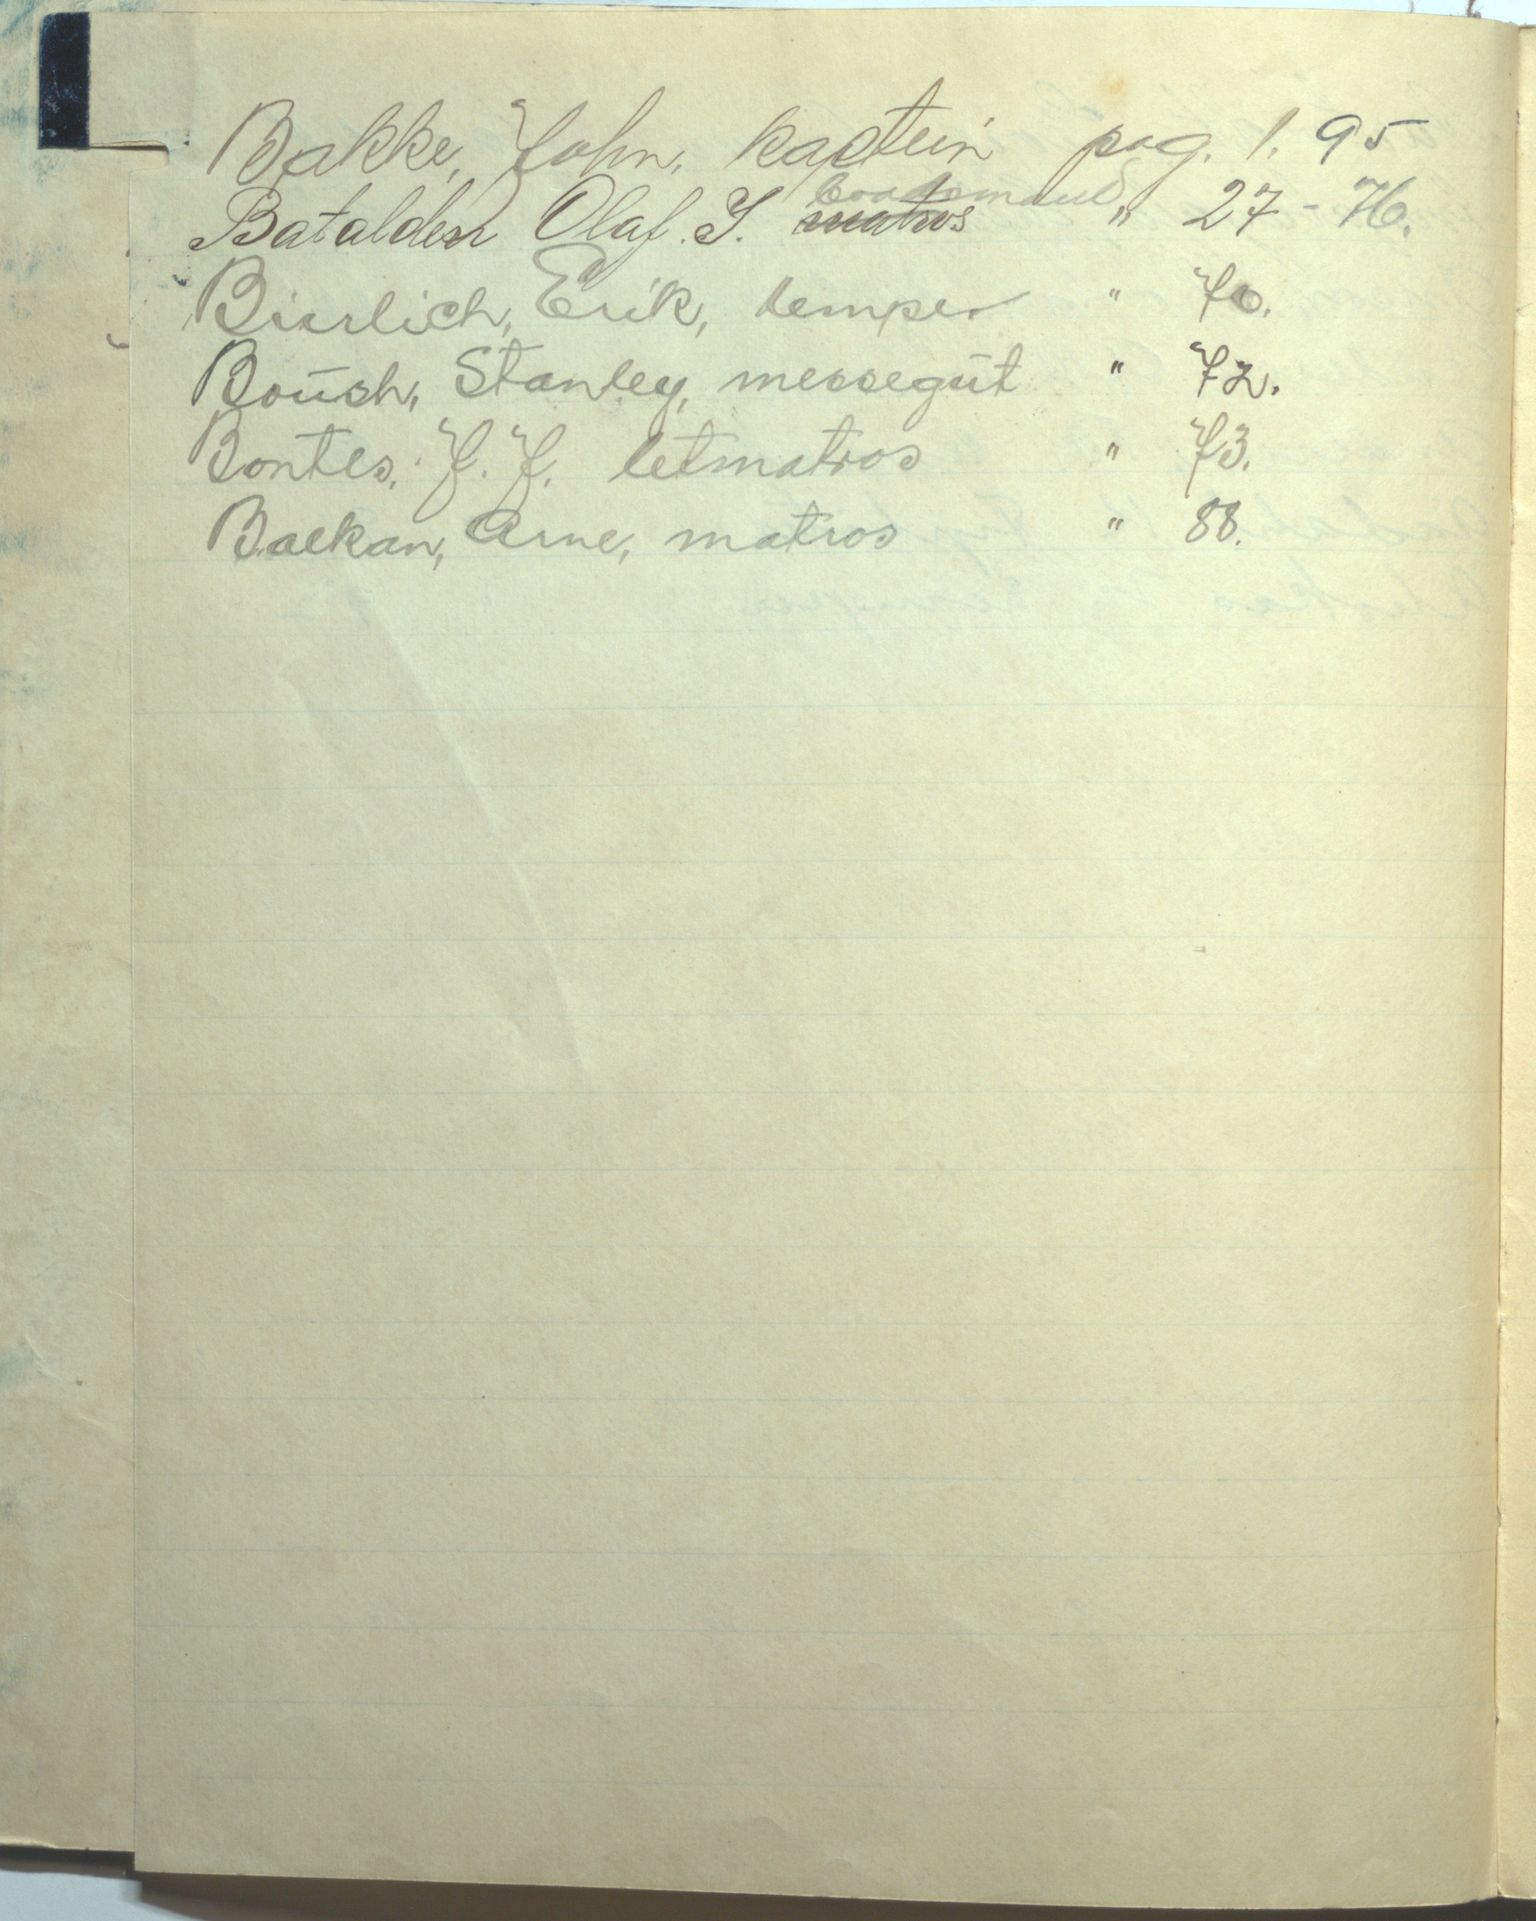 Bakke, John, kaptein pag. 1. 95
baadsmand
Batalden Olaf. S. matros " 27 - 76.
Bierlich, Erik, lemper " 70.
Boush, Stanley, messegut " 72.
Bontes, J. J. letmatros " 73.
Baekan, Arne, matros " 88.